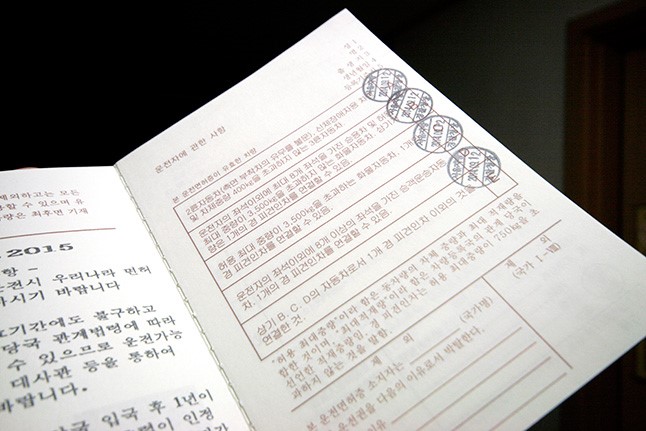 제외하고는 모든
할 수 있으며 유
사항은 최후면 기재
2015
항 -
운전시 우리나라 면허
하시기 바랍니다
효기간에도 불구하고
당국 관계법령에 따라
수 있으므로 운전가능
대사관 등을 통하여
바랍니다.
입국 후 1년이
인정
운전자에 관한 사항
본 운전면허증이 유효한 차량
2륜자동차(측면 부착차의 유무를 불문), 신체장애자용 차
및 자체중량 400kg을 초과하지 않는 3륜자동차.
운전자의 좌석이외에 최대 8개 좌석을 가진 승용차 및 허용
최대 중량이 3,500kg을 초과하지 않는 화물자동차. 상기
량은 1개의 경 피견인차를 연결할 수 있음.
허용 최대 중량이 3,500kg을 초과하는 화물자동차. 1개
경 피견인차를 연결할 수 있음.
운전자의 좌석이외에 8개 이상의 좌석을 가진 승객운송자동
차. 1개의 경 피견인차를 연결할 수 있음.
상기 B, C, D의 자동차로서 1개 경 피견인차 이외의 것을
연결한 것.
"허용 최대중량"이라 함은 동차량의 자체 중량과 최대 적재량을
합한 것이며, "최대적재량"이라 함은 차량등록국의 관계 당국이
선언한 적재중량임. 경 피견인차는 허용 최대중량이 750kg을 초
과하지 않는 것을 말함.
제 외
(국가별)
제 외
(국가 I-VIII)
본 운전면허증 소지자는
운전권을 다음의 이유로서 박탈한다.